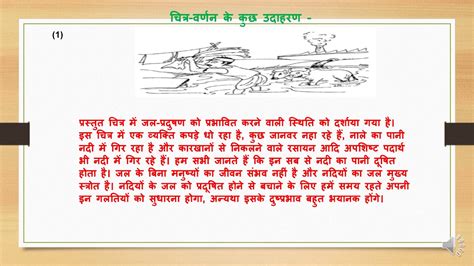 चित्र-वर्णन के कुछ उदाहरण -
(1)
प्रस्तुत चित्र में जल-प्रदुषण को प्रभावित करने वाली स्थिति को दर्शाया गया है।
इस चित्र में एक व्यक्ति कपड़े धो रहा है, कुछ जानवर नहा रहे हैं, नाले का पानी
नदी में गिर रहा है और कारखानों से निकलने वाले रसायन आदि अपशिष्ट पदार्थ
भी नदी में गिर रहे हैं। हम सभी जानते हैं कि इन सब से नदी का पानी दूषित
होता है। जल के बिना मनुष्यों का जीवन संभव नहीं है और नदियों का जल मुख्य
स्त्रोत है। नदियों के जल को प्रदूषित होने से बचाने के लिए हमें समय रहते अपनी
इन गलतियों को सुधारना होगा, अन्यथा इसके दुष्प्रभाव बहुत भयानक होंगे।